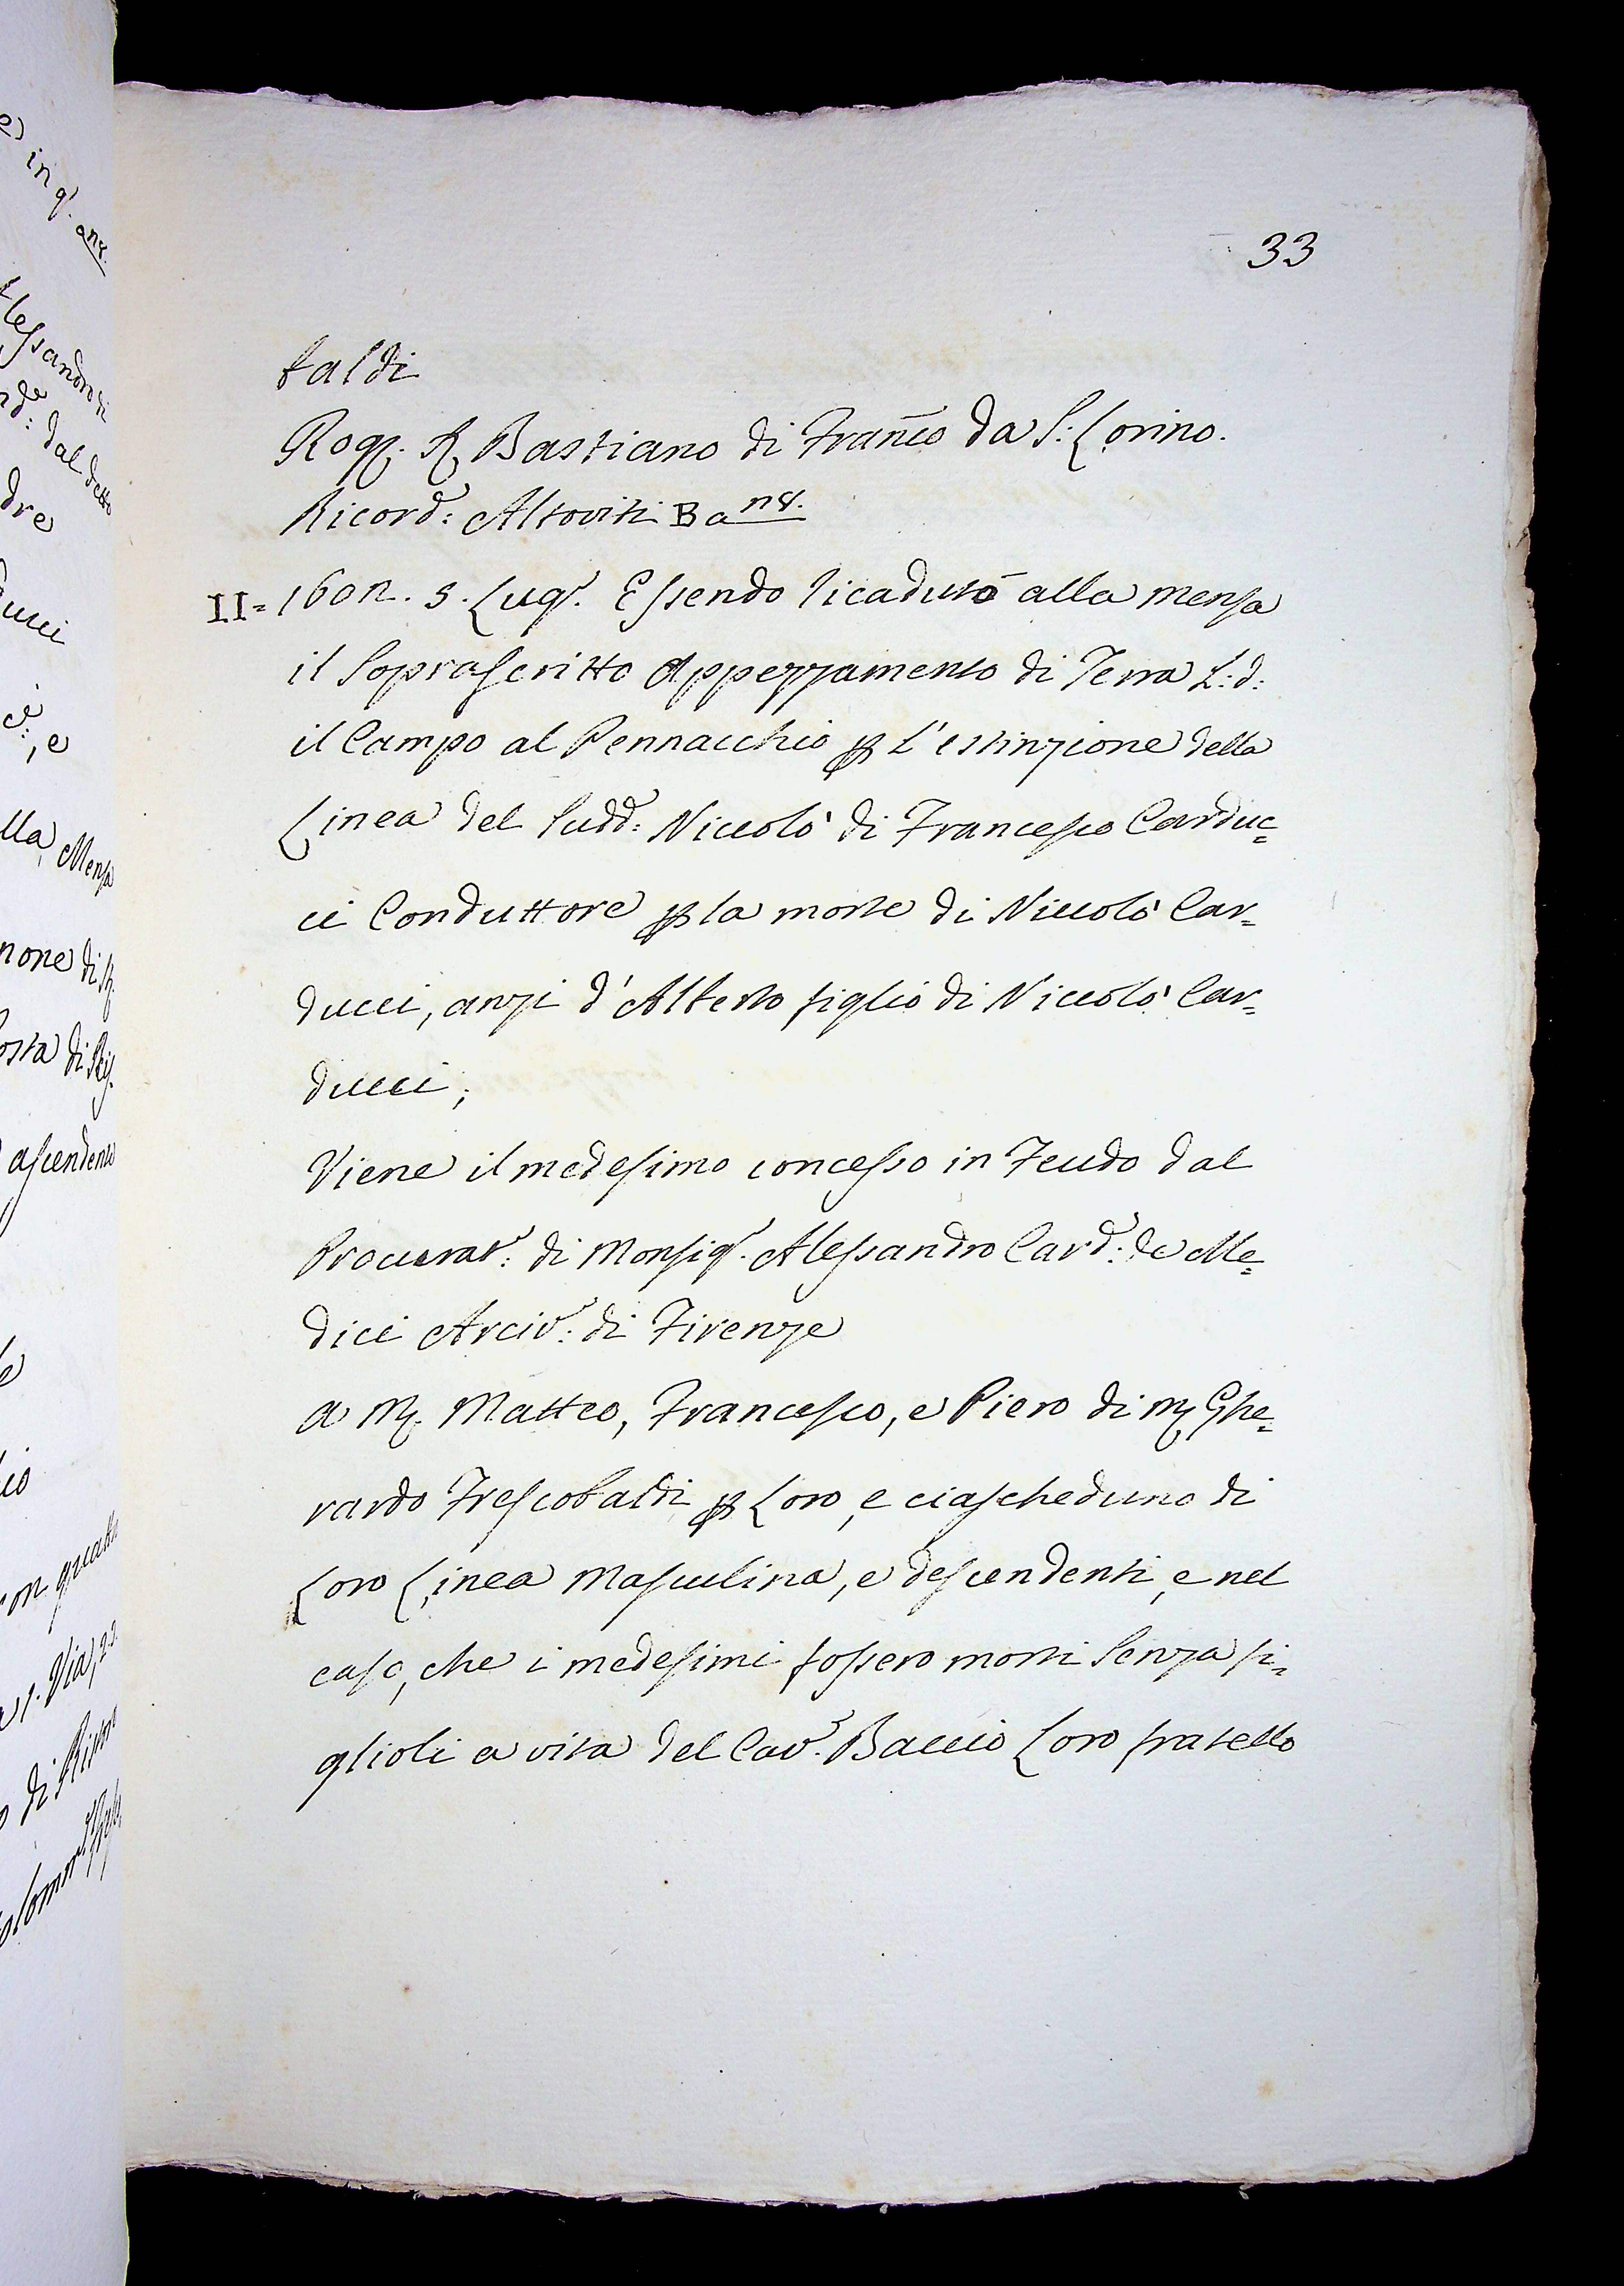 33
baldi
Rog. S. Bastiano di Fran:co da S: Lorino.
Ricord: Altoviti B a n8.
II= 1602. 5. Lug. Essendo ricaduto alla Mensa
il Soprascritto Appezzamento di Terra L: d:
il Campo al Pennacchio p L'estinzione della
Linea del Sudd: Niccolò di Francesco Carduc=
ci Conduttore p la morte di Niccolò Car=
ducci, anzi d'Alberto figlio di Niccolò Car=
ducci;
Viene il medesimo concesso in Feudo dal
Procurat: di Monsig. Alessandro Card: de Me=
dici Arciv: di Firenze
a M. Matteo, Francesco, e Piero di M. Ghe=
rardo Frescobaldi p Loro, e ciascheduno di
Loro Linea Masculina, e descendenti, e nel
caso, che i medesimi fossero morti senza fi=
glioli a vita del Cav. Baccio Loro fratello